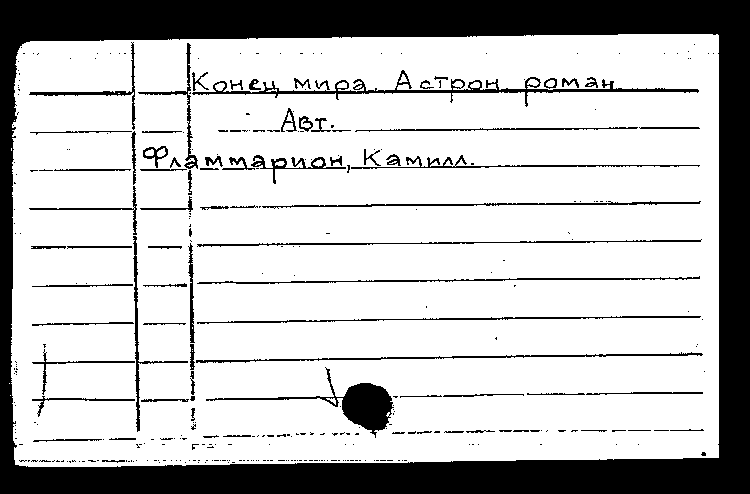 Конец мира. Астрон. роман.
Авт.
Фламмарион, Камилл.